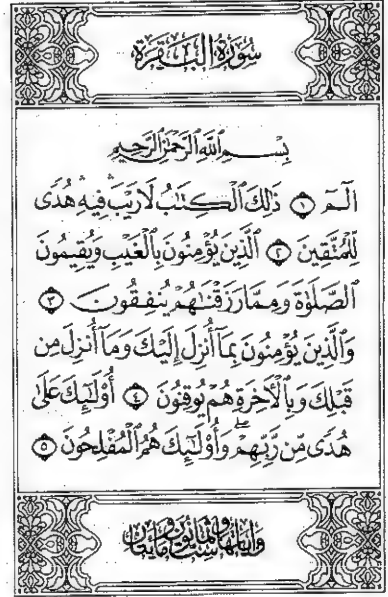 سُورَةُ الْبَقَرَةِ
بِسْمِ اللَّهِ الرَّحْمَٰنِ الرَّحِيمِ
الٓمٓ ۝١ ذَٰلِكَ الْكِتَٰبُ لَا رَيْبَ ۛ فِيهِ ۛ هُدًى
لِّلْمُتَّقِينَ ۝٢ الَّذِينَ يُؤْمِنُونَ بِالْغَيْبِ وَيُقِيمُونَ
الصَّلَوٰةَ وَمِمَّا رَزَقْنَٰهُمْ يُنفِقُونَ ۝٣
وَالَّذِينَ يُؤْمِنُونَ بِمَآ أُنزِلَ إِلَيْكَ وَمَآ أُنزِلَ مِن
قَبْلِكَ وَبِالْأَخِرَةِ هُمْ يُوقِنُونَ ۝٤ أُو۟لَٰٓئِكَ عَلَىٰ
هُدًى مِّن رَّبِّهِمْ ۖ وَأُو۟لَٰٓئِكَ هُمُ الْمُفْلِحُونَ ۝٥
وآياتها مائتان وست وثمانون